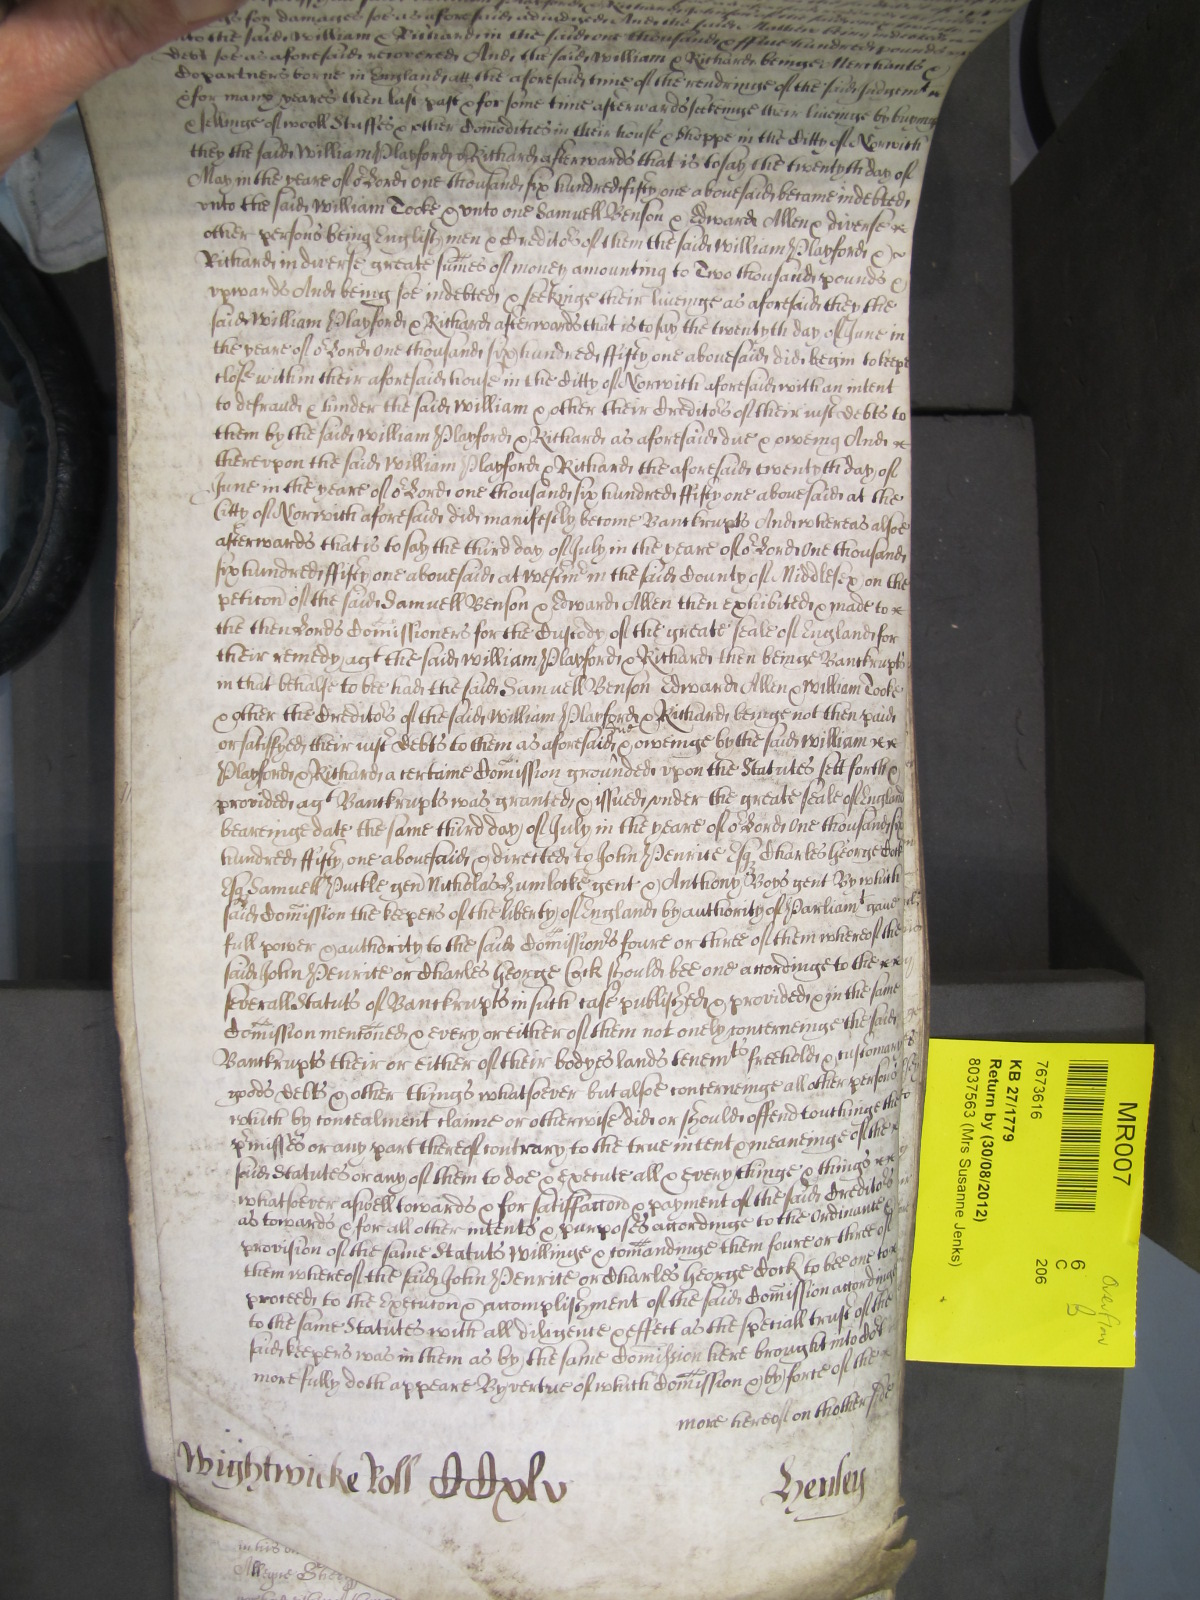 for damages soe as aforesaid adiudged And the said
unto the said William & Richard in the said one thousand & ffive hundred pounds
debt soe as aforesaid recovered And the said William & Richard beinge Merchants &
Copartners borne in England att the aforesaid time of the rendringe of the said Judgemt
& for many yeares then last past & for some time afterwards seekeinge their liueinge by buyinge
& sellinge of wooll Stuffes & other Comodities in their house & shoppe in the Citty of Norwich
they the said William Playford & Richard afterwards that is to say the twentyth day of
May in the yeare of or Lord one thousand six hundred fifty one abouesaid became indebted
vnto the said William Tooke & vnto one Samuell Benson & Edward Allen & diverse
other persons being Englishmen & Creditors of them the said William Playford &
Richard in diverse greate sumes of money amounting to Two thousand pounds &
vpwards And being soe indebted & seekinge their liueinge as aforesaid they the
said William Playford & Richard afterwards that is to say the twentyth day of June in
the yeare of or Lord One thousand six hundred ffifty one abouesaid did begin to keepe
close within their aforesaid house in the Citty of Norwich aforesaid with an intent
to defraud & hinder the said William & other their Creditors of their iust debts to
them by the said William Playford & Richard as aforesaid due & oweing And
therevpon the said William Playford & Richard the aforesaid twentyth day of
June in the yeare of or Lord one thousand six hundred ffifty one abouesaid at the
Citty of Norwich aforesaid did manifestly become Banckrupts And whereas alsoe
afterwards that is to say the third day of July in the yeare of or Lord One thousand
six hundred ffifty one abouesaid at Westmr in the said County of Middlesex on the
peticon of the said Samuell Benson & Edward Allen then exhibited & made to
the then Lords Comissioners for the Custody of the greate seale of England for
their remedy agt the said William Playford & Richard then beinge Banckrupts
in that behalfe to bee had the said Samuell Benson Edward Allen & William Tooke
& other the Creditors of the said William Playford & Richard beinge not then paid
or satisfyed their iust debts to them as aforesaid due & oweinge by the said William
Playford & Richard a certaine Comission grounded vpon the Statutes sett forth &
provided agt Banckrupts was granted & issued vnder the greate seale of England
beareinge date the same third day of July in the yeare of or Lord One thousand six
hundred ffifty one abouesaid & directed to John Penrice Esq Charles George Cock
Esq Samuell Puckle gent Nicholas Zumlocke gent & Anthony Boys gent By which
said Comission the keepers of the liberty of England by authority of Parliamt gaue
full power & authority to the said Comissionrs foure or three of them whereof the
said John Penrice or Charles George Cock should bee one accordinge to the
severall Statuts of Banckrupts in such case published & provided & in the same
Comission mentioned & every or either of them not onely concerneinge the said
Banckrupts their or either of their bodyes lands tenemts freehold & customary
goods debts & other things whatsoever but alsoe concerneinge all other persons
which by concealment claime or otherwise did or should offend touchinge the
pmisses or any part thereof contrary to the true intent & meaneinge of the
said Statutes or any of them to doe & execute all & every thinge & things
whatsoever aswell towards & for satisfaccon & payment of the said Creditors
as towards & for all other intents & purposes accordinge to the Ordinance &
provision of the same Statuts Willinge & comandinge them foure or three of
them whereof the said John Penrice or Charles George Cock to bee one to
proceed to the execution & accomplishment of the said Comission accordinge
to the same Statutes with all diligence & effect as the speciall trust of the
said keepers was in them as by the same Comission here brought into Cot
more fully doth appeare By vertue of which Comission & by force of the
more hereof on thother side
Wightwicke Roll CCxlv
Henley
MR007
7673616
6
C
206
KB 27/1779
Return by (30/08/2012)
8037563 (Mrs Susanne Jenks)
overflow